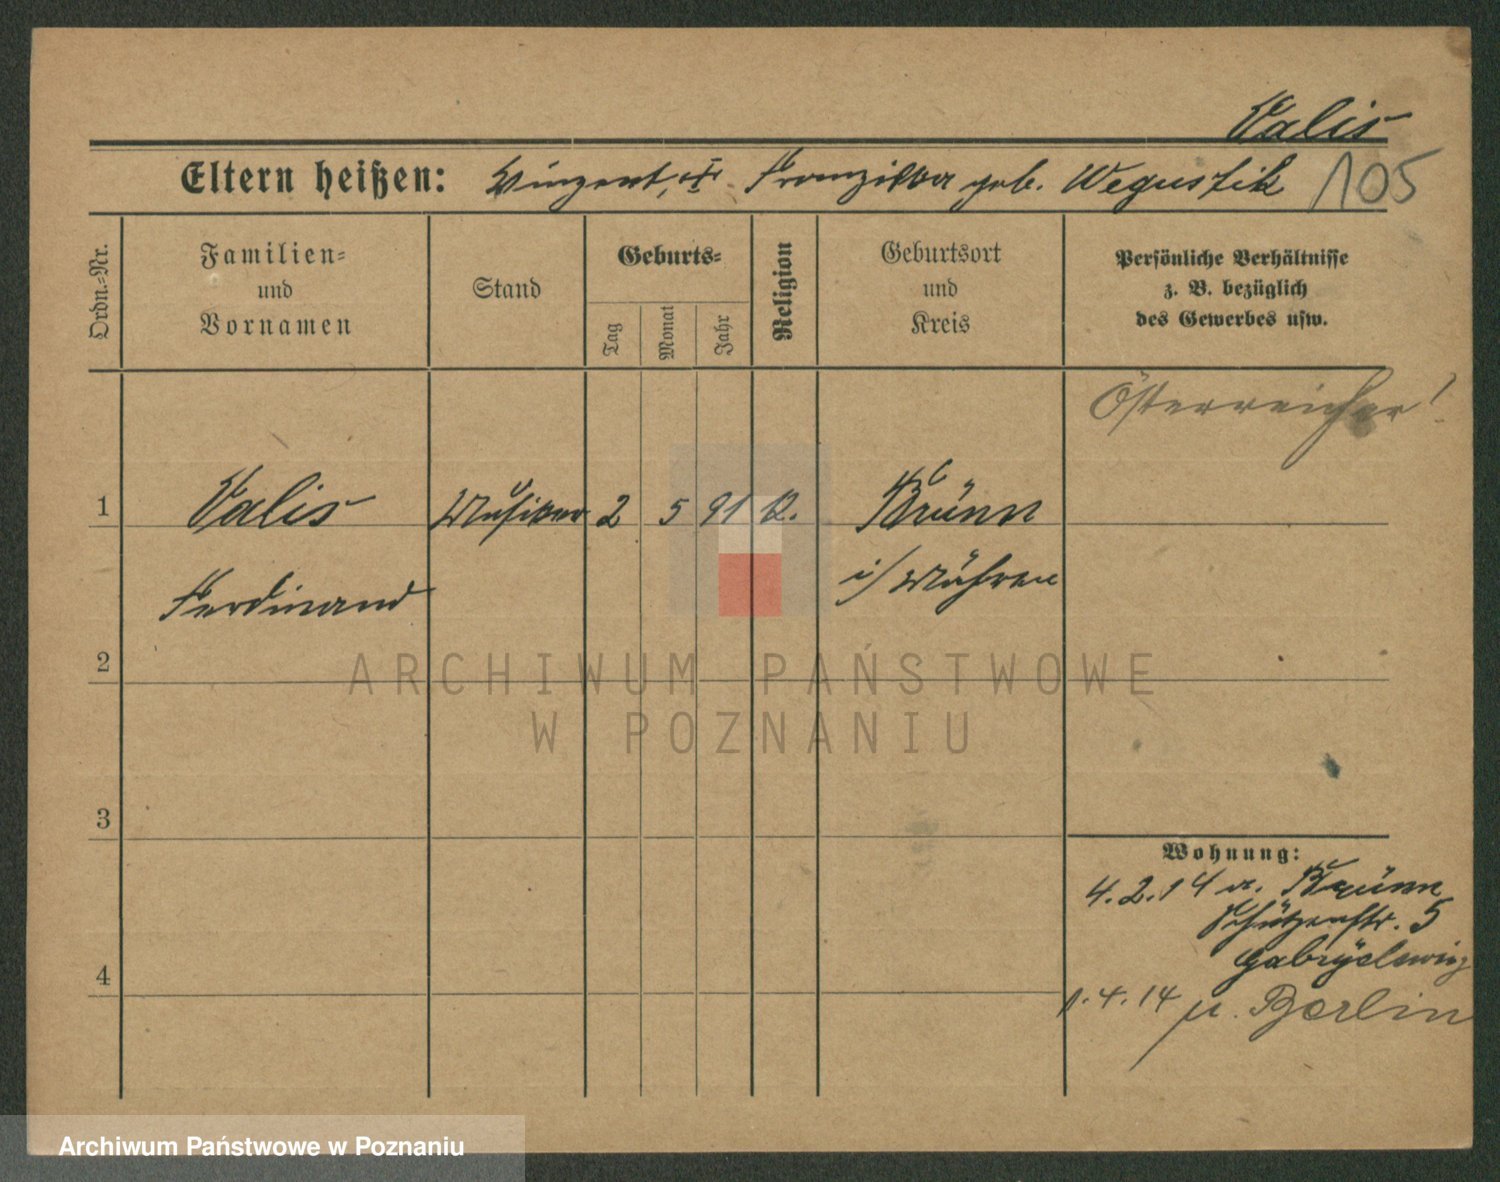 Valis
Eltern heißen: Vinzent, u. Franziska geb. Wegustik 105
Ordn.-Nr.
Familien-
und
Vornamen
Stand
Geburts-
Tag
Monat
Jahr
Religion
Geburtsort
und
Kreis
Persönliche Verhältnisse
z. B. bezüglich
des Gewerbes usw.
Österreicher!
1 Valis Musiker 2 5 91 K. Brünn
Ferdinand i/ Mähren
2
ARCHIWUM PAŃSTWOWE
W POZNANIU
3
Wohnung:
4.2.14 v. Brünn
Schützenstr. 5
4
1.4.14 n. Berlin
Archiwum Państwowe w Poznaniu